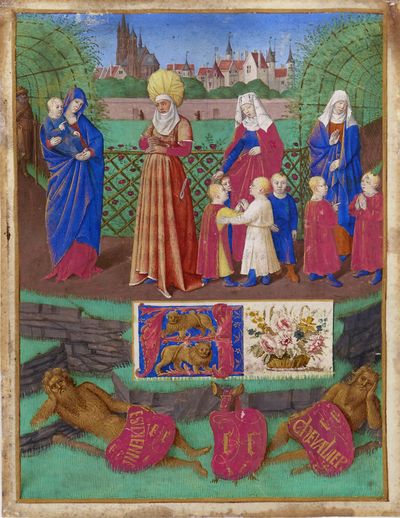 ESTIENNE
CHEVALIER